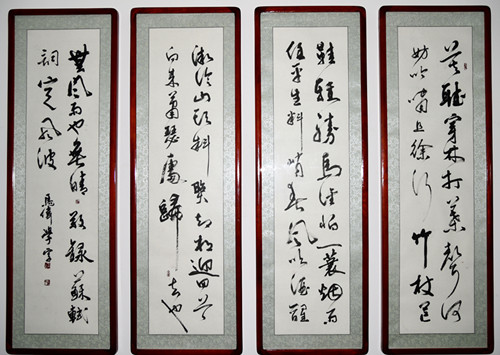 莫聽穿林打葉聲何
妨吟嘯且徐行竹杖芒
鞋輕勝馬誰怕一蓑烟雨
任平生料峭春風吹酒醒
微冷山頭斜照却相迎回首
向來蕭瑟處歸去也
無風雨也無晴 錄蘇軾
詞定風波